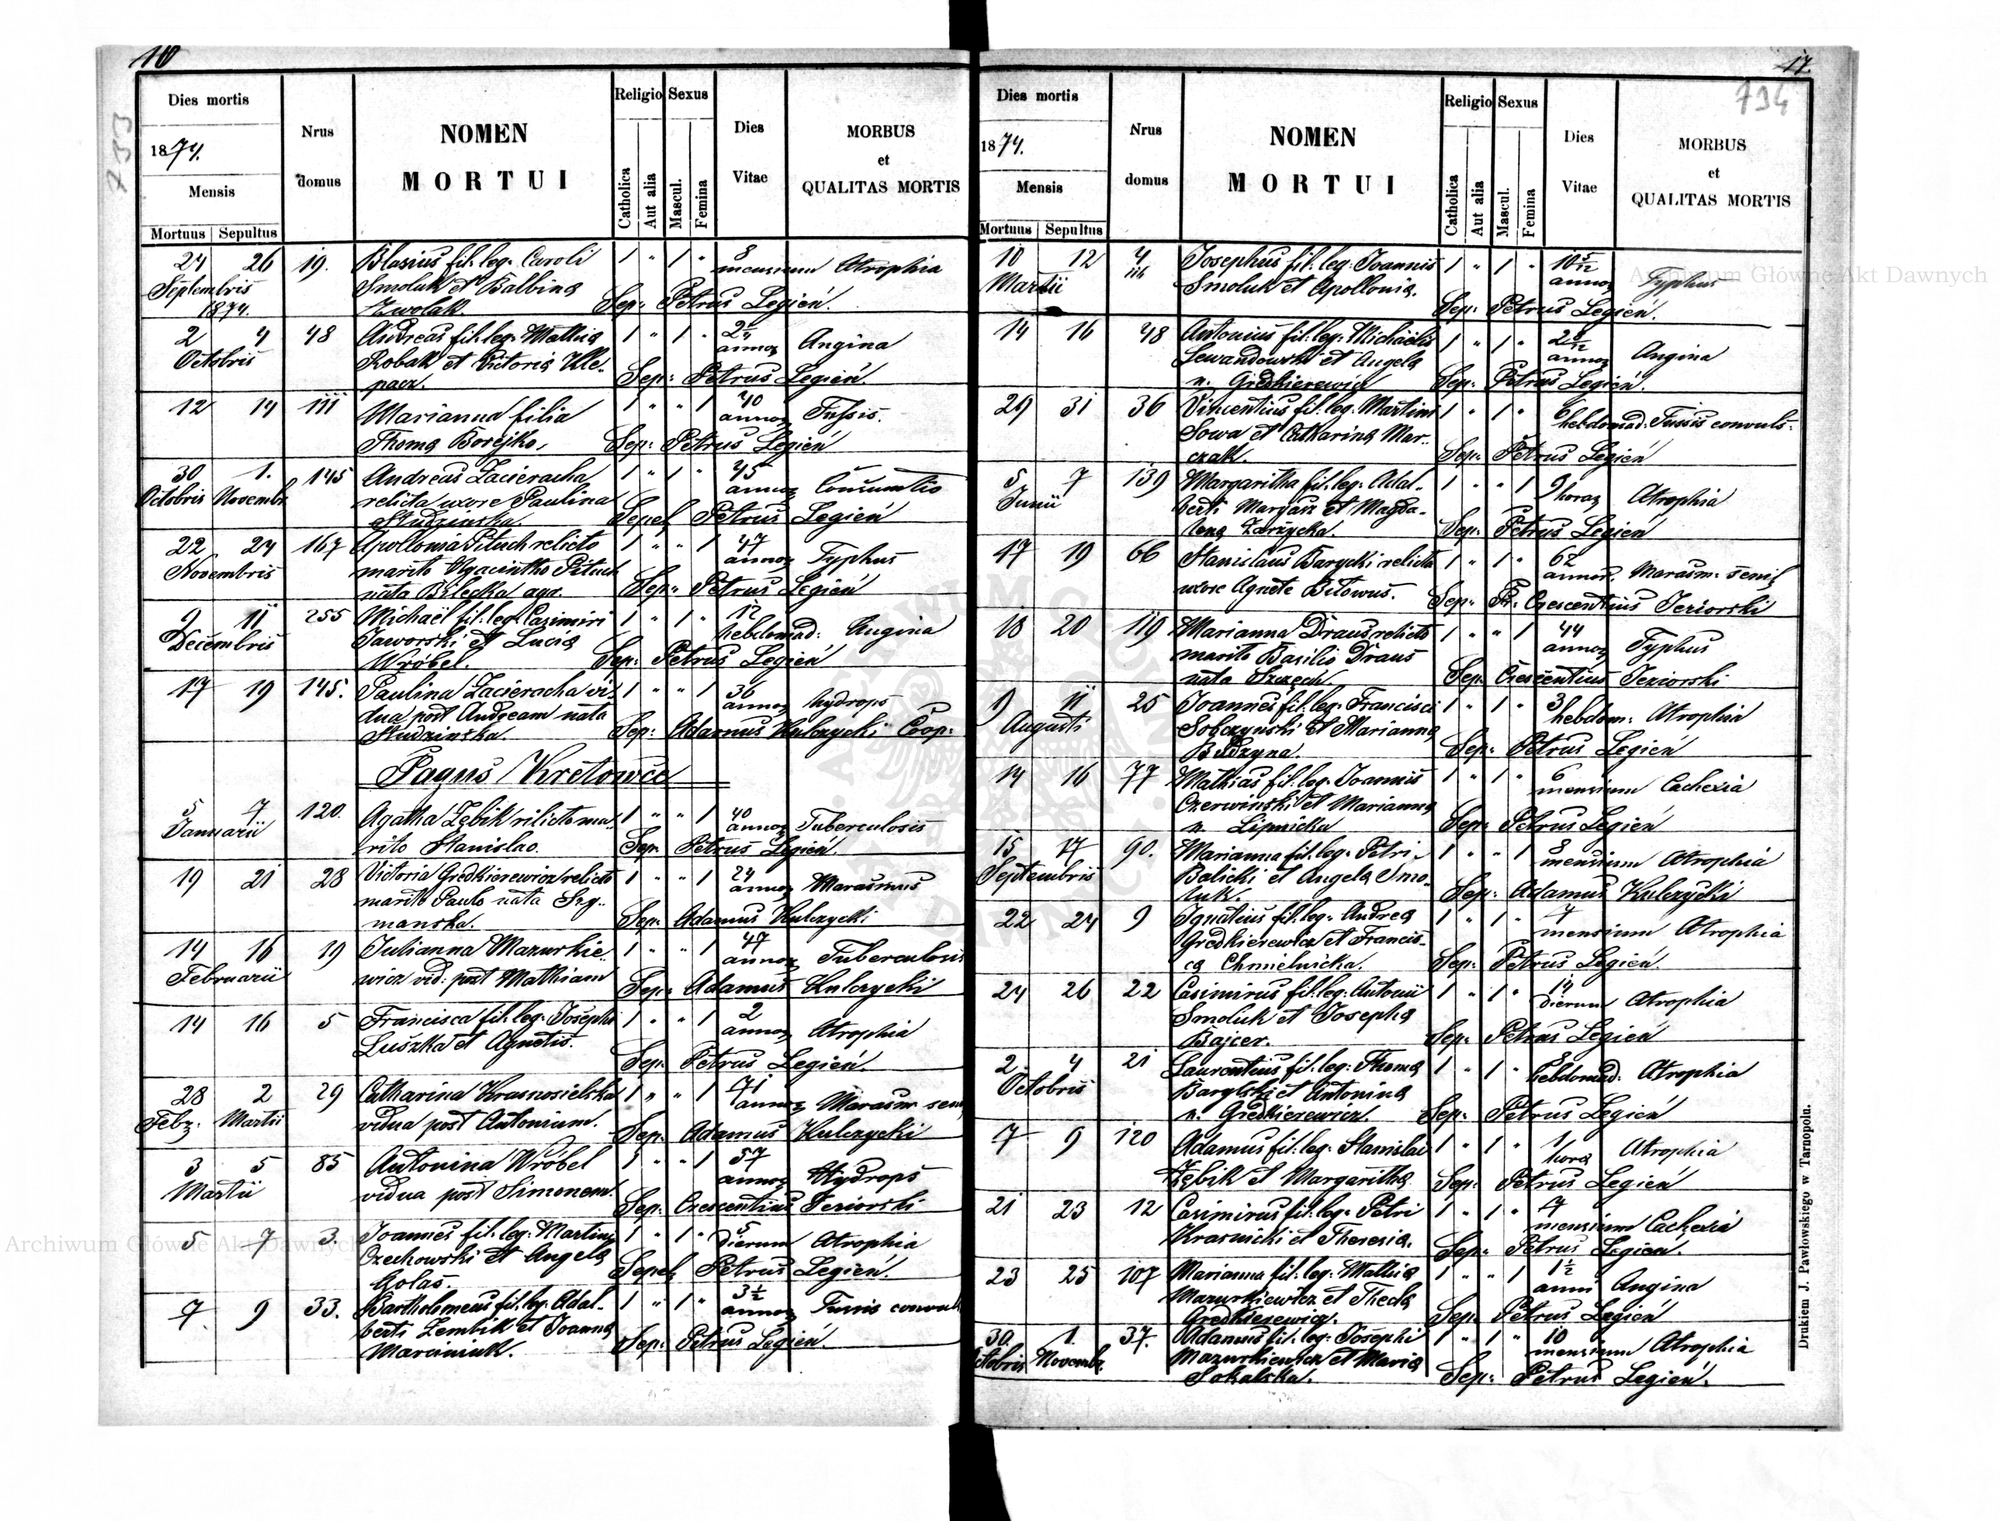 10
733
Dies mortis
1874.
Mensis
Mortuus Sepultus
Nrus domus
NOMEN MORTUI
Religio
Catholica
Aut alia
Sexus
Mascul.
Femina
Dies Vitae
MORBUS et QUALITAS MORTIS
24 26 19. Blasius fil: leg: Caroli 1 " 1 " 8 mensium Atrophia
Septembris Smoluk et Balbina
1874. Zwolak. Sep: Petrus Legień.
2 4 48 Andreas fil: leg: Mathia 1 " 1 " annor Angina
Octobris Robak et Victoria Kle-
pacz. Sep: Petrus Legień.
12 14 111 Marianna filia 1 " " 1 40 annor Tussis.
Thoma Borejko, Sep: Petrus Legień
30 1. 145 Andreas Zacieracha 1 " 1 " 45 annor Consumtio
Octobris Novembr. relicta uxore Paulina
Studzinska. Sepel Petrus Legień
22 24 167 Apollonia Pituch relicto 1 " " 1 47 annor Typhus
Novembris marito Hyacintho Pituch
nata Bilecka agr. Sep: Petrus Legień
9 11 255 Michaël fil: leg: Casimiri 1 " 1 " 12 hebdomad: Angina
Decembris Jaworski et Lucia
Wróbel. Sep: Petrus Legień
17 19 145. Paulina Zacieracha vi- 1 " " 1 36 annor Hydrops
dua post Andream nata
Studzinska. Sep: Adamus Kulczycki Coop:
Pagus Kretowce
5 7 120. Agatha Zębik relicto ma- 1 " " 1 40 annor Tuberculosis
Januarii rito Stanislao. Sep. Petrus Legień.
19 21 28 Victoria Gredkierewicz relicto 1 " " 1 24 annor Marasmus
marito Paulo nata Szy-
manska. Sep: Adamus Kulczycki
14 16 19 Julianna Mazurkie- 1 " " 1 47 annor Tuberculosis
Februarii wicz vid: post Mathiam Sep: Adamus Kulczycki
14 16 5 Francisca fil: leg: Josephi 1 " " 1 2 annor Atrophia
Luszka et Agnetis. Sep: Petrus Legień.
28 2 29 Catharina Krasnosielska 1 " " 1 71 annor Marasm. sen
Febr. Martii vidua post Antonium. Sep: Adamus Kulczycki
3 5 85 Antonina Wróbel 1 " " 1 57 annor Hydrops
Martii vidua post Simonem. Sep: Crescentius Jeziorski
5 7 3. Joannes fil: leg: Martini 1 " 1 " 5 dierum Atrophia
Orzechowski et Angela
Golas. Sepel Petrus Legień.
7 9 33. Bartholomeus fil: leg: Adal- 1 " 1 " 3½ annor Tussis convul
berti Zembik et Joanna
Marciniuk. Sep: Petrus Legień.
17.
734
Dies mortis
1874.
Mensis
Mortuus Sepultus
Nrus domus
NOMEN MORTUI
Religio
Catholica
Aut alia
Sexus
Mascul.
Femina
Dies Vitae
MORBUS et QUALITAS MORTIS
10 12 4/116 Josephus fil: leg: Joannis 1 " 1 " 10 5/12 annor Typhus
Martii Smoluk et Apollonia. Sep: Petrus Legień.
14 16 48 Antonius fil: leg: Michaelis 1 " 1 " 2 8/12 annor Angina
Lewandowski et Angela
n. Gredkierewicz Sep: Petrus Legień.
29 31 36 Vincentius fil: leg: Martini 1 " 1 " 6 hebdomad: Tussis convuls:
Sowa et Catharina Mar-
czak. Sep: Petrus Legień
5 7 139 Margaritha fil: leg: Adal- 1 " " 1 9 horar Atrophia
Junii berti Margasz et Magda-
lena Zarzycka. Sep: Petrus Legień
17 19 66 Stanislaus Barycki relicta 1 " 1 " 62 annor. Marasm: senil
uxore Agnete Bitowus. Sep: Fr. Crescentius Jeziorski
18 20 119 Marianna Draus relicto 1 " " 1 44 annor Typhus
marito Basilio Draus
nata Szczęch. Sep. Crescentius Jeziorski
9 11 25 Joannes fil: leg: Francisci 1 " 1 " 3 hebdom: Atrophia
Augusti Sobczynski et Marianna
Budzyna. Sep: Petrus Legień
14 16 77 Mathias fil: leg: Joannis 1 " 1 " 6 mensium Cachexia
Czerwiński et Marianna
n. Lipnicka Sep: Petrus Legień
15 17 90. Marianna fil: leg: Petri 1 " " 1 8 mensium Atrophia
Septembris Balicki et Angela Smo-
luk. Sep: Adamus Kulczycki
22 24 9 Ignatius fil: leg: Andrea 1 " 1 " 7 mensium Atrophia
Gredkierewicz et Francis-
ca Chmielnicka. Sep: Petrus Legień.
24 26 22 Casimirus fil: leg: Antonii 1 " 1 " 14 dierum Atrophia
Smoluk et Josepha
Bajcer. Sep: Petrus Legień
2 4 21 Laurentius fil: leg: Thoma 1 " 1 " hebdomad: Atrophia
Octobris et Antonina
n. Gredkierewicz. Sep: Petrus Legień
7 9 120 Adamus fil: leg: Stanislai 1 " 1 " 1 hora Atrophia
Zębik et Margaritha Sep: Petrus Legień
21 23 12 Casimirus fil: leg: Petri 1 " 1 " 7 mensium Cachexia
Krasnicki et Theresia. Sep: Petrus Legień.
23 25 107 Marianna fil: leg: Mathia 1 " " 1 1½ anni Angina
Mazurkiewicz et Thecla
Gredkierewicz. Sep: Petrus Legień
30 1. 37. Adamus fil: leg: Josephi 1 " 1 " 10 mensium Atrophia
Octobris Novembr. Mazurkiewicz et Maria
Sokalska. Sep: Petrus Legień.
Drukiem J. Pawłowskiego w Tarnopolu.
Archiwum Główne Akt Dawnych
Archiwum Główne Akt Dawnych
ARCHIWUM GŁÓWNE AKT DAWNYCH